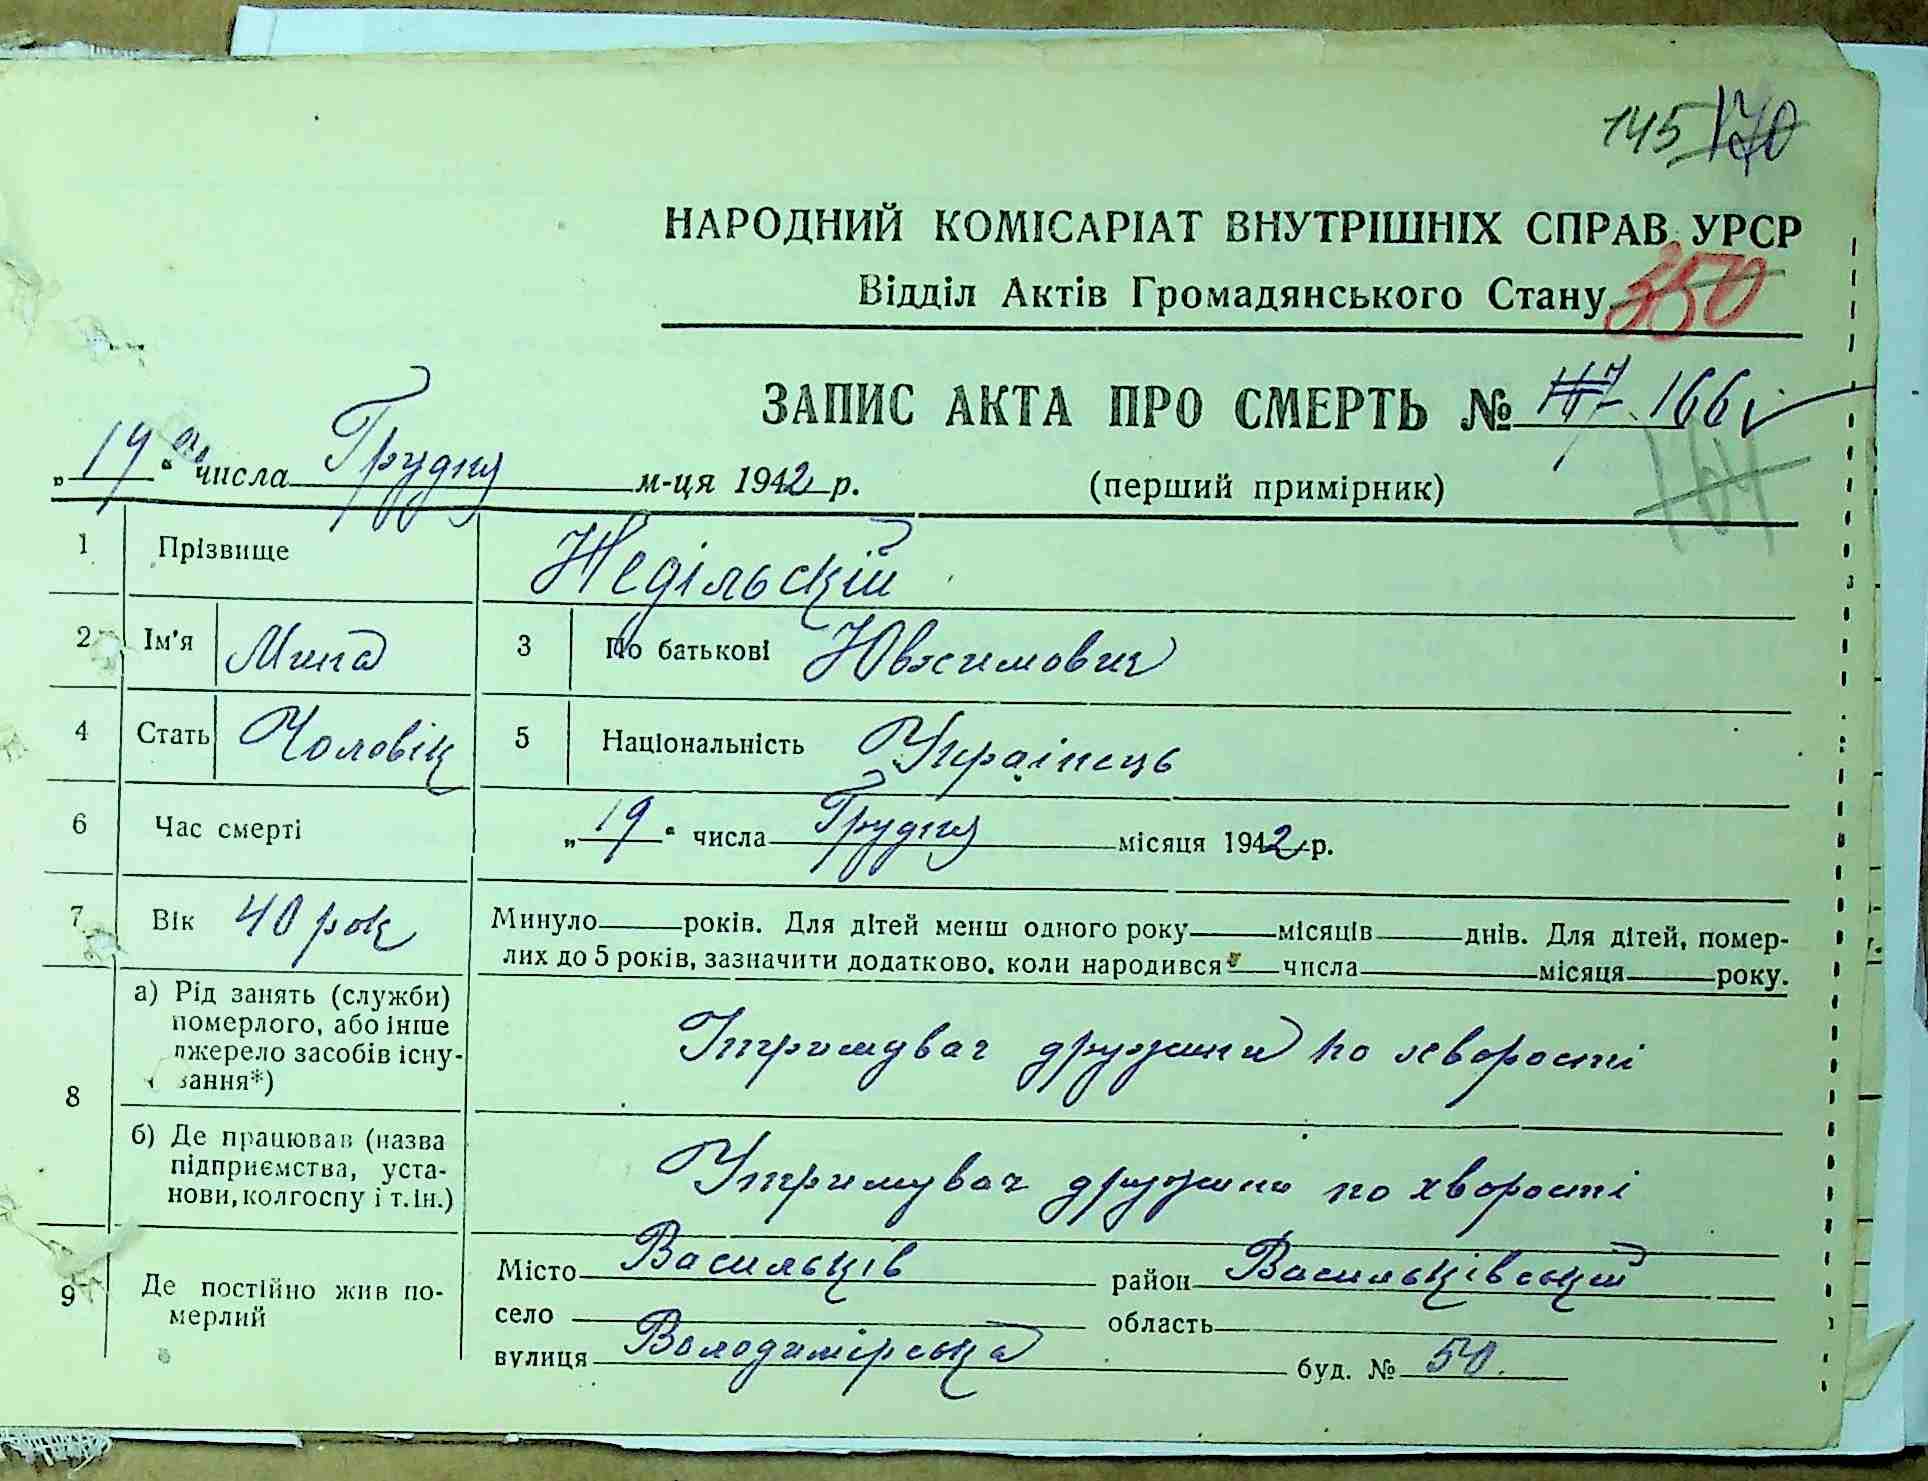 145 170
НАРОДНИЙ КОМІСАРІАТ ВНУТРІШНІХ СПРАВ УРСР
Відділ Актів Громадянського Стану 350
ЗАПИС АКТА ПРО СМЕРТЬ № 166
164
„19“ числа Грудня м-ця 1942 р. (перший примірник)
1 Прізвище Недільскій
2 Ім'я Мина 3 По батькові Ювхимович
4 Стать Чоловік 5 Національність Українець
6 Час смерті „19“ числа Грудня місяця 1942 р.
7 Вік 40 рок Минуло років. Для дітей менш одного року місяців днів. Для дітей, помер-
лих до 5 років, зазначити додатково, коли народився числа місяця року.
8 а) Рід занять (служби)
померлого, або інше
джерело засобів існу-
вання*)
Утримувач дружини по хворости
б) Де працював (назва
підприємства, уста-
нови, колгоспу і т. ін.)
Утримувач дружини по хворости
9 Де постійно жив по-
мерлий
Місто Васильків район Васильківський
село область
вулиця Володимірська буд. № 50.